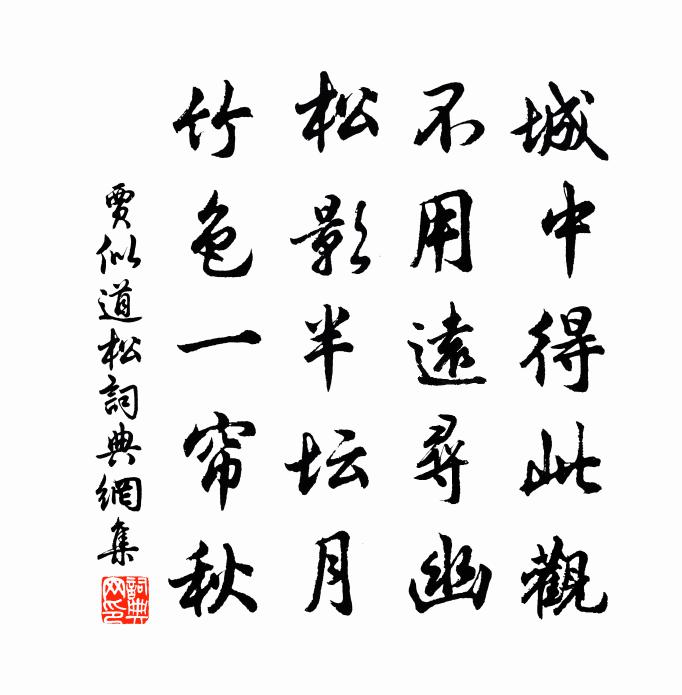 城中得此觀
不用遠尋幽
松影半坛月
竹色一帘秋
賈似道松詞典網集
詞典網印